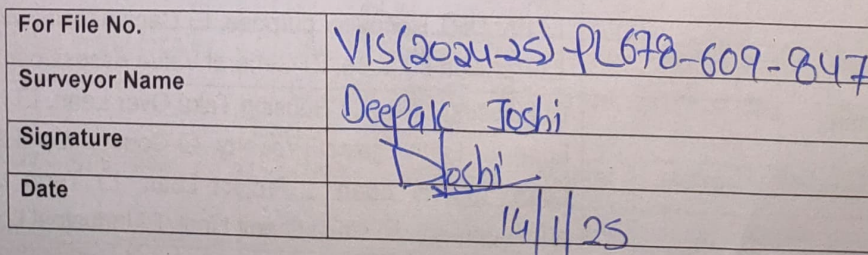 For File No. VIS(2024-25)-PL678-609-847
Surveyor Name Deepak Joshi
Signature DJoshi
Date 14/1/25